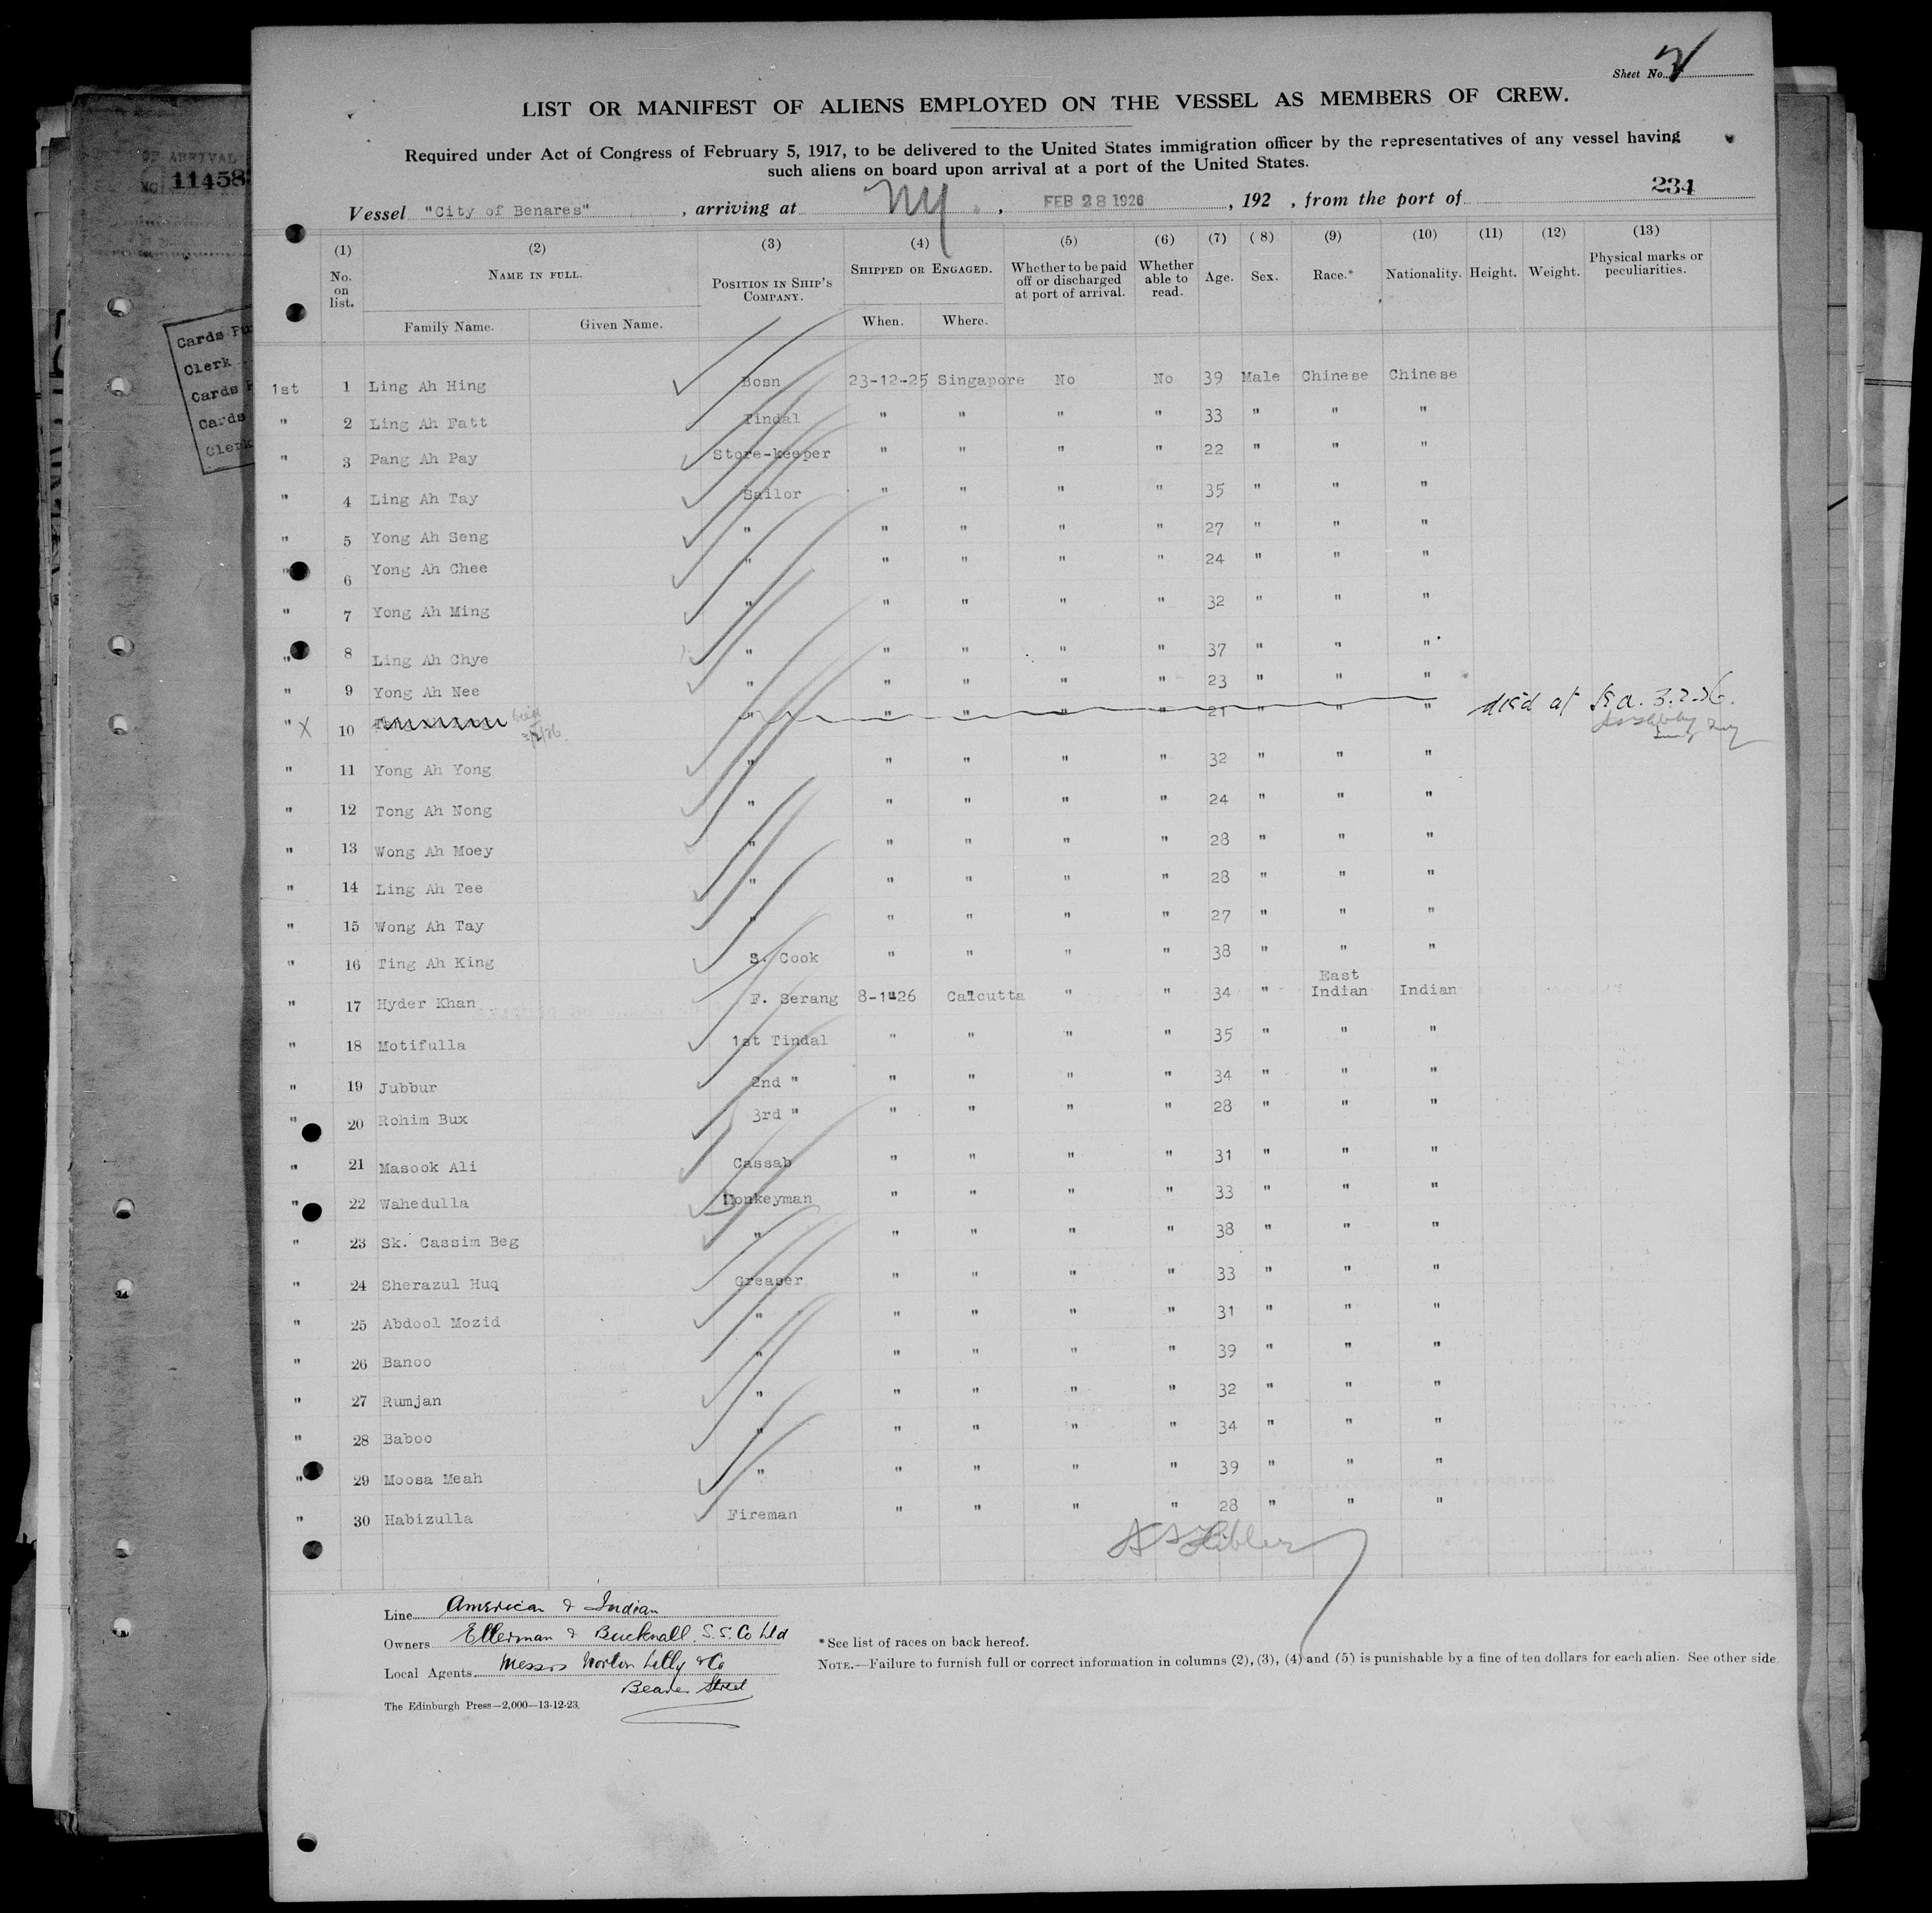 Sheet No. 2
LIST OR MANIFEST OF ALIENS EMPLOYED ON THE VESSEL AS MEMBERS OF CREW.
Required under Act of Congress of February 5, 1917, to be delivered to the United States immigration officer by the representatives of any vessel having
such aliens on board upon arrival at a port of the United States.
OF ARRIVAL
NO 11458
234
Vessel "City of Benares", arriving at NY, FEB 28 1926, 192 , from the port of
(1) (2) (3) (4) (5) (6) (7) (8) (9) (10) (11) (12) (13)
No. on list. NAME IN FULL. POSITION IN SHIP'S COMPANY. SHIPPED OR ENGAGED. Whether to be paid off or discharged at port of arrival. Whether able to read. Age. Sex. Race.* Nationality. Height. Weight. Physical marks or peculiarities.
Family Name. Given Name. When. Where.
Cards
Clerk
Cards
Cards
Clerk
1st 1 Ling Ah Hing Bosn 23-12-25 Singapore No No 39 Male Chinese Chinese
" 2 Ling Ah Fatt Tindal " " " " 33 " " "
" 3 Pang Ah Pay Store-keeper " " " " 22 " " "
" 4 Ling Ah Tay Sailor " " " " 35 " " "
" 5 Yong Ah Seng " " " " " 27 " " "
" 6 Yong Ah Chee " " " " " 24 " " "
" 7 Yong Ah Ming " " " " " 32 " " "
" 8 Ling Ah Chye " " " " " 37 " " "
" 9 Yong Ah Nee " " " " " 23 " " "
" X 10 " " " " " 21 " " " died at 3.2.26.
" 11 Yong Ah Yong " " " " " 32 " " "
" 12 Tong Ah Nong " " " " " 24 " " "
" 13 Wong Ah Moey " " " " " 28 " " "
" 14 Ling Ah Tee " " " " " 28 " " "
" 15 Wong Ah Tay " " " " " 27 " " "
" 16 Ting Ah King S. Cook " " " " 38 " " "
" 17 Hyder Khan F. Serang 8-1-26 Calcutta " " 34 " East Indian Indian
" 18 Motifulla 1st Tindal " " " " 35 " " "
" 19 Jubbur 2nd " " " " " 34 " " "
" 20 Rohim Bux 3rd " " " " " 28 " " "
" 21 Masook Ali Cassab " " " " 31 " " "
" 22 Wahedulla Donkeyman " " " " 33 " " "
" 23 Sk. Cassim Beg " " " " " 38 " " "
" 24 Sherazul Huq Greaser " " " " 33 " " "
" 25 Abdool Mozid " " " " " 31 " " "
" 26 Banoo " " " " " 39 " " "
" 27 Rumjan " " " " " 32 " " "
" 28 Baboo " " " " " 34 " " "
" 29 Moosa Meah " " " " " 39 " " "
" 30 Habizulla Fireman " " " " 28 " " "
Line American & Indian
Owners Ellerman & Bucknall S.S. Co Ltd
Local Agents Messrs Norton Lilly & Co
Beaver Street
The Edinburgh Press—2,000—13-12-23.
*See list of races on back hereof.
NOTE.—Failure to furnish full or correct information in columns (2), (3), (4) and (5) is punishable by a fine of ten dollars for each alien. See other side